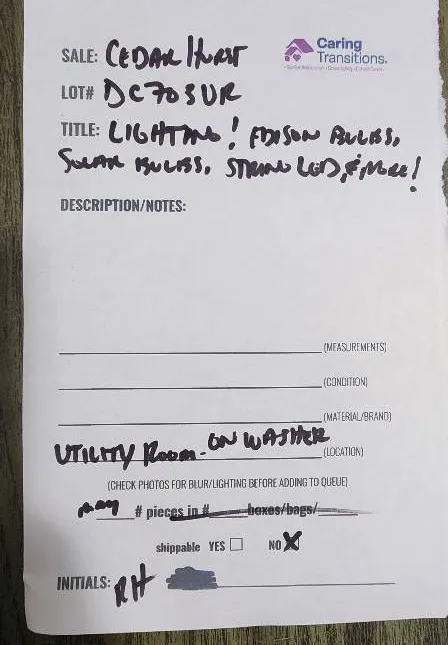 Caring
Transitions.
SALE: CEDAR HURST
LOT# DC703UR
TITLE: LIGHTING! EDISON BULBS,
SOLAR BULBS, STRING LED, & MORE!
DESCRIPTION/NOTES:
(MEASUREMENTS)
(CONDITION)
(MATERIAL/BRAND)
UTILITY ROOM - ON WASHER (LOCATION)
(CHECK PHOTOS FOR BLUR/LIGHTING BEFORE ADDING TO QUEUE)
many # pieces in # boxes/bags/
shippable YES ☐ NO X
INITIALS: RH